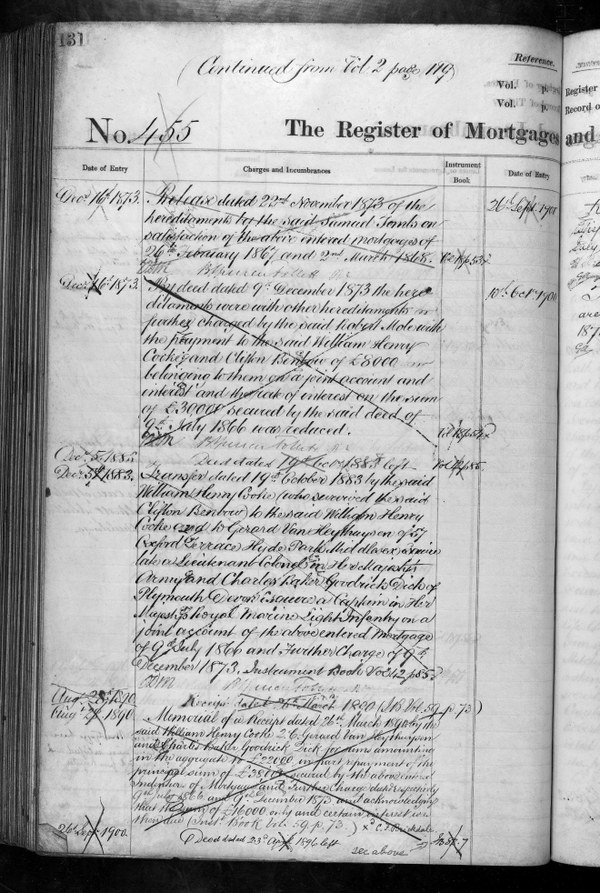 131
(Continued from Vol 2 page 119)
Reference.
Vol. p.
Vol. p.
No. 455 The Register of Mortgages and
Register
Record o
Date of Entry
Charges and Incumbrances
Instrument Book
Date of Entry
Decr 16th 1873.
Release dated 22nd November 1873 of the
hereditaments by the said Samuel Tombs on
satisfaction of the above entered mortgages of
26th February 1867 and 2nd March 1868.
26th Sept. 1900
Decr 16th 1873.
By deed dated 9th December 1873 the here
ditaments were with other hereditaments in
charged by the said Robert Mole with
the payment to the said William Henry
Cooke and Clifton Benbow of £8000
belonging to them on a joint account and
interest and the rate of interest on the sum
of £30000 secured by the said deed of
9th July 1866 was reduced.
10th Octr 1900
Decr 5 1883
Deed dated 19th Octr 1883 left
Decr 5th 1883.
Transfer dated 19th October 1883 by the said
William Henry Cooke (who survived the said
Clifton Benbow) to the said William Henry
Cooke and to Gerard Van Heythuysen of 57
Oxford Terrace Hyde Park Middlesex
late a Lieutenant Colonel in Her Majestys
Army and Charles Baker Goodrick Dick of
Plymouth Devon Esquire a Captain in Her
Majestys Royal Marine Light Infantry on a
joint account of the above entered Mortgage
of 9th July 1866 and Further Charge of 9th
December 1873. Instrument Book Vol 42 p. 85
Augt 28th 1890
Receipt dated 26th March 1890 (I B Vol. 59. p. 73)
Augt 28th 1890
Memorial of a Receipt dated 26th March 1890 by the
said William Henry Cooke Gerard Van Heythuysen
and Charles Baker Goodrick Dick for sums amounting
in the aggregate to £22000 in part repayment of the
principal sum of £38000 secured by the above entered
Indenture of Mortgage and Further Charge dated respectively
9th July 1866 and 9th December 1873 and acknowledging
that the sum of £16000 only and certain interest was
then due (Inst. Book Vol. 59 p. 73.)
26th Sept 1900
(Deed dated 23rd April 1896 left
see above